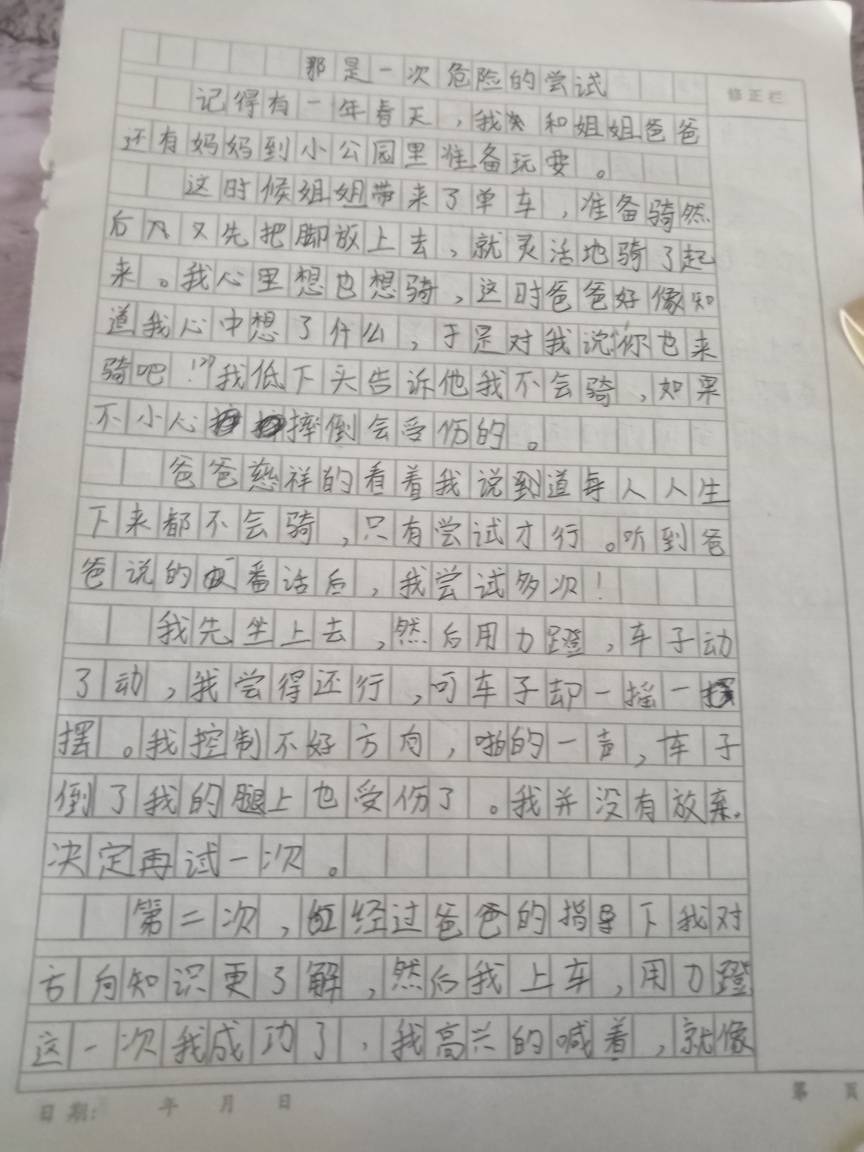 那是一次危险的尝试
修正栏
记得有一年春天，我和姐姐爸爸
还有妈妈到小公园里准备玩耍。
这时候姐姐带来了单车，准备骑然
后又先把脚放上去，就灵活地骑了起
来。我心里想也想骑，这时爸爸好像知
道我心中想了什么，于是对我说“你也来
骑吧！”我低下头告诉他我不会骑，如果
不小心摔倒会受伤的。
爸爸慈祥的看着我说到道每人人生
下来都不会骑，只有尝试才行。听到爸
爸说的番话后，我尝试多次！
我先坐上去，然后用力蹬，车子动
了动，我尝得还行，可车子却一摇一
摆。我控制不好方向，啪的一声，车子
倒了我的腿上也受伤了。我并没有放弃。
决定再试一次。
第二次，经过爸爸的指导下我对
方向知识更了解，然后我上车，用力蹬
这一次我成功了，我高兴的喊着，就像
日期: 年 月 日
第 页